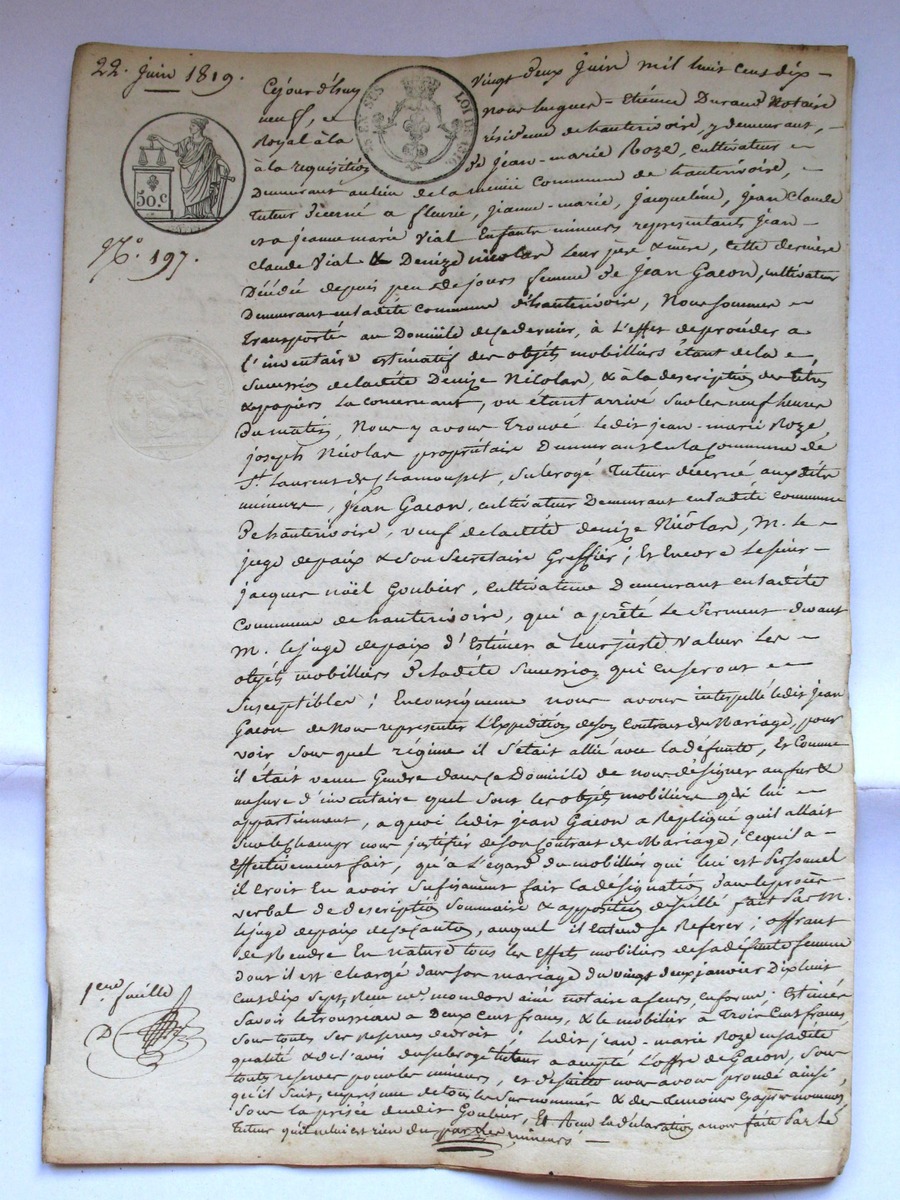 22. juin 1819.
Cejourd'huy vingt deux juin mil huit cent dix-
neuf, nous hugues-Etienne Durand Notaire
Royal à la résidence de hauterivoire, y demeurant,
à la requisition de jean-marie Roze, cultivateur
Demeurant au lieu de la commune de hauterivoire,
tuteur décerné a fleurie, jeanne-marie, jacqueline, jean Claude
et a jeanne marie Vial Enfants mineurs representants jean-
Claude Vial & Denize nicolas leur père & mère, cette derniere
Décédée depuis peu de jours femme de jean Gacon, cultivateur
Demeurant en ladite commune d'hauterivoire, Nous sommes
transporté au Domicile de ce dernier, à l'effet de procéder a
l'inventaire estimatif des objets mobilliers étant de la
succession de ladite Denize Nicolas, & à la description des titres
& papiers la concernant, où étant arrivé sur les neuf heures
Du matin, Nous y avons trouvé ledit jean-marie Roze,
joseph Nicolas propriétaire Demeurant en la Commune de
St Laurent de Chamousset, subrogé tuteur décerné aux dits
mineurs, jean Gacon, cultivateur Demeurant en ladite commune
De hauterivoire, veuf de ladite denize Nicolas, M. le
juge de paix & son Secretaire Greffier; Et Encore le sieur
jacques noël Goubier, cultivateur Demeurant en ladite
Commune de hauterivoire, qui a prêté le serment devant
M. le juge de paix d'Estimer à leur juste valeur les
objets mobilliers De ladite succession qui en seront
susceptibles! En conséquence nous avons interpellé ledit jean
Gacon de nous representer l'Expédition de son Contrat de Mariage, pour
voir sous quel régime il s'était allié avec la défunte, Et Comme
il était venu Gendre dans ce Domicile de nous désigner au fur &
mesure d'inventaire quel sont les objets mobiliers qui lui
appartiennent, a quoi ledit jean Gacon a Repliqué qu'il allait
sur le Champ nous justifier de son Contrat de Mariage, ce qu'il a
effectivement fait, qu'a l'égard du mobillier qui lui est Personnel
il croit En avoir sufisament fait la désignation dans le procès
verbal de description sommaire & apposition de scellé fait Par M.
le juge de paix de ce canton, auquel il entend se Referer; offrant
de Rendre En nature tous les Effets mobiliers de sa défunte femme
dont il est chargé dans son mariage du vingt deux janvier Dix huit
cent dix sept, Recu notaire a feurs, en forme; Estimés
Savoir le trousseau a Deux Cent francs, & le mobilier à Trois Cent francs,
sous toutes ses Reserves de droit! Ledit jean-marie Roze en sadite
qualité & de l'avis du subrogé tuteur a accepté l'offre de Gacon, sous
toutes reserves pour les mineurs, et de suitte nous avons procédé ainsi
qu'il suit, en présence de tous les sus nommés & des Temoins Cy après nommés
sous la prisée du dit Goubier, Et Recu la déclaration a nous faite Par le
tuteur qu'il ne lui est rien du par les mineurs
50.c
N.o 197.
1ere feuille